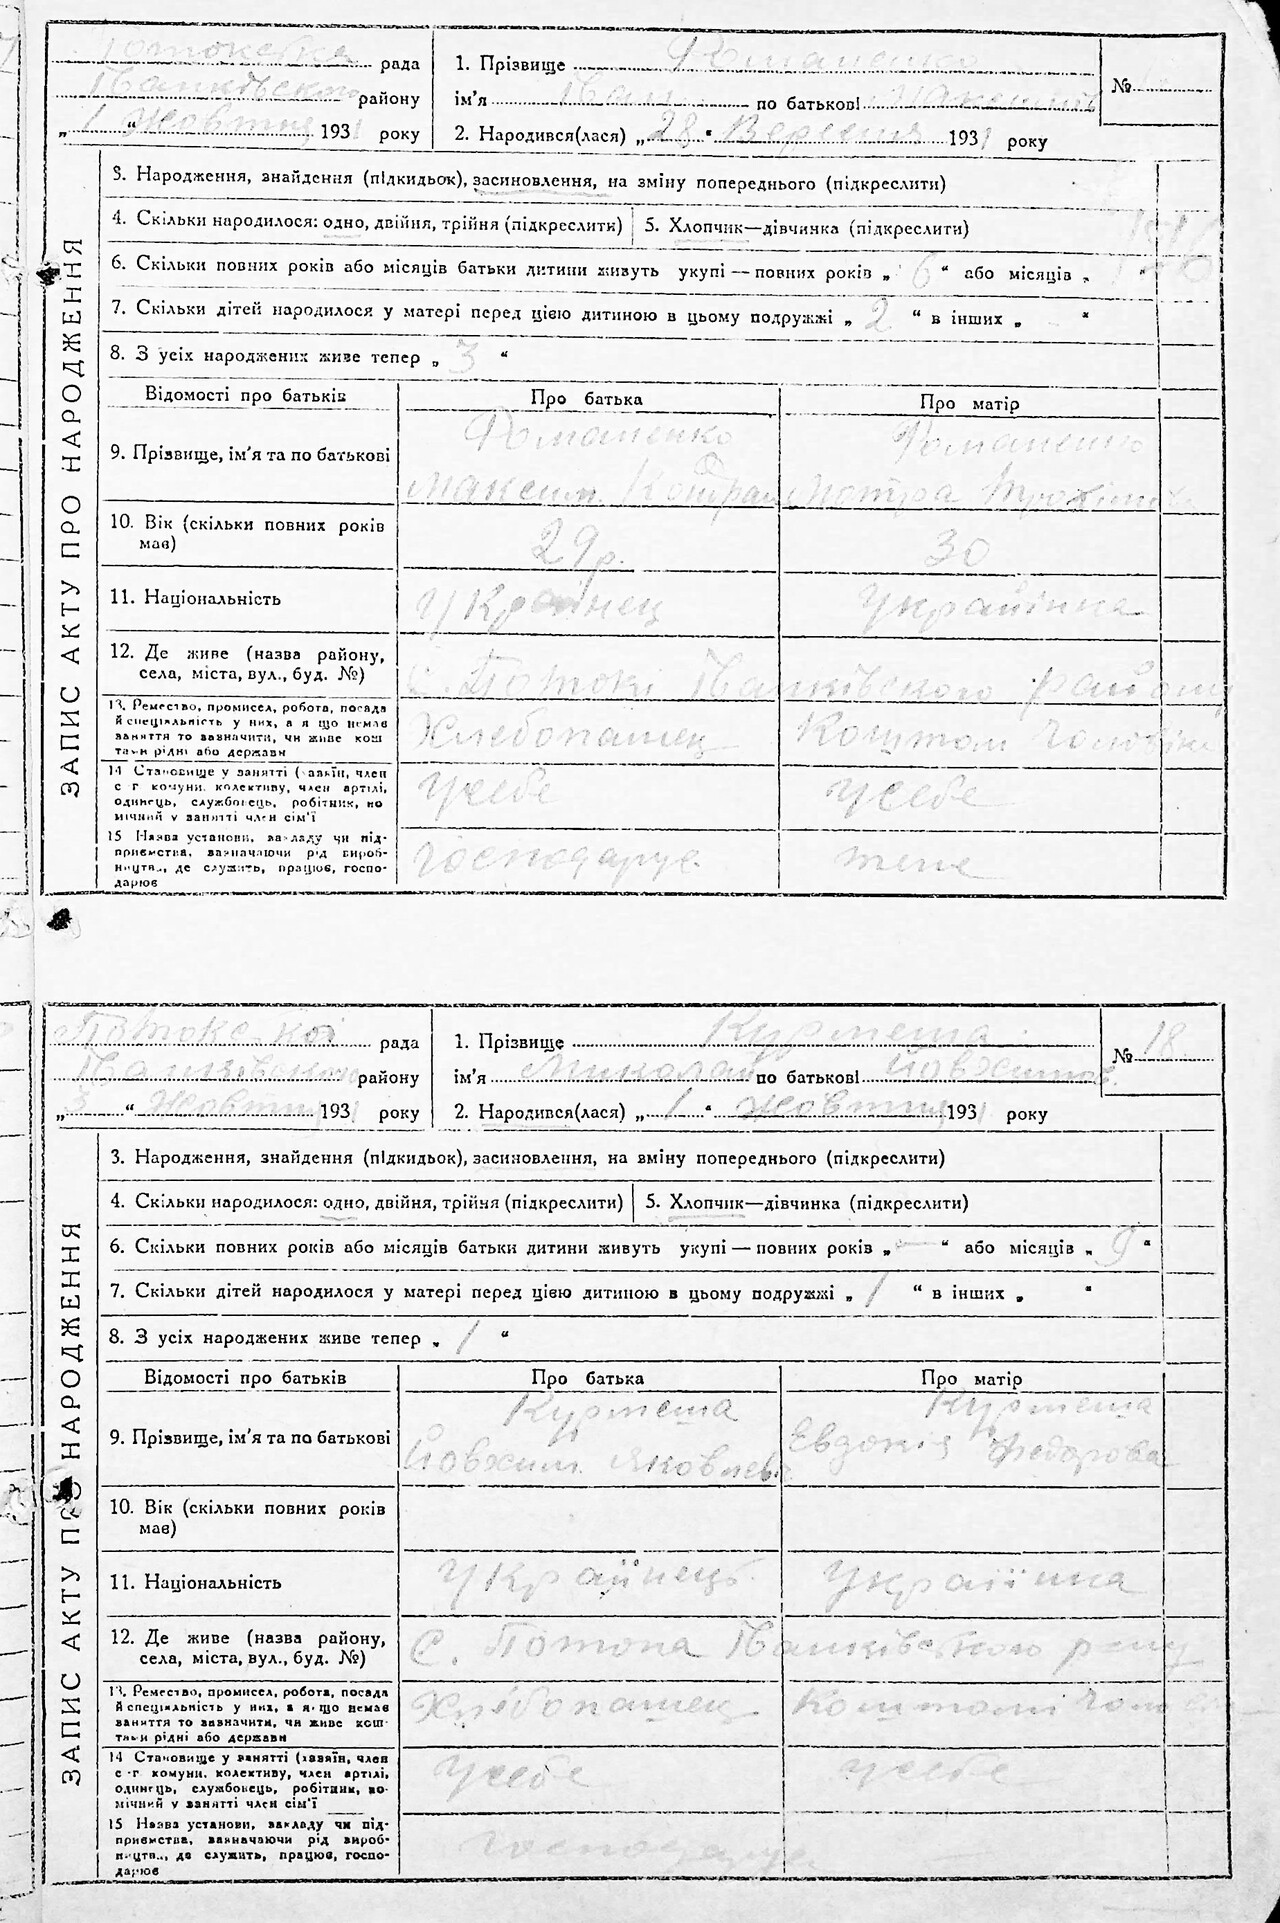 Потокська рада
району
„ 1 “ Жовтня 1931 року
1. Прізвище Романенко
ім'я по батькові
2. Народився(лася) „ 28 “ Вересня 1931 року
№
ЗАПИС АКТУ ПРО НАРОДЖЕННЯ
3. Народження, знайдення (підкидьок), засиновлення, на зміну попереднього (підкреслити)
4. Скільки народилося: одно, двійня, трійня (підкреслити)
5. Хлопчик—дівчинка (підкреслити)
6. Скільки повних років або місяців батьки дитини живуть укупі — повних років „ 6 “ або місяців „
7. Скільки дітей народилося у матері перед цією дитиною в цьому подружжі „ 2 “ в інших „ “
8. З усіх народжених живе тепер „ 3 “
Відомості про батьків
Про батька
Про матір
9. Прізвище, ім'я та по батькові
Романенко
Максим
Романенко
Мотра
10. Вік (скільки повних років має)
29 р.
30
11. Національність
Українець
Українка
12. Де живе (назва району, села, міста, вул., буд. №)
с. Потокі району
13. Ремество, промисел, робота, посада й спеціяльність у них, а якщо немає заняття то зазначити, чи живе коштами рідні або держави
Хлебопашец
14 Становище у занятті (хазяїн, член с-г комуни, колективу, член артілі, одинець, службовець, робітник, помічний у занятті член сім'ї
у себе
у себе
15 Назва установи, закладу чи підприємства, зазначаючи рід виробництва, де служить, працює, господарює
господарує
теж
Потокської рада
району
„ 3 “ Жовтня 1931 року
1. Прізвище Курмеша
ім'я Миколай по батькові Йовхимов.
2. Народився(лася) „ 1 “ Жовтня 1931 року
№ 18
ЗАПИС АКТУ ПРО НАРОДЖЕННЯ
3. Народження, знайдення (підкидьок), засиновлення, на зміну попереднього (підкреслити)
4. Скільки народилося: одно, двійня, трійня (підкреслити)
5. Хлопчик—дівчинка (підкреслити)
6. Скільки повних років або місяців батьки дитини живуть укупі — повних років „ — “ або місяців „ 9 “
7. Скільки дітей народилося у матері перед цією дитиною в цьому подружжі „ 1 “ в інших „ “
8. З усіх народжених живе тепер „ 1 “
Відомості про батьків
Про батька
Про матір
9. Прізвище, ім'я та по батькові
Курмеша
Йовхим Яковлев
Курмеша
Евдокія Федорова
10. Вік (скільки повних років має)
11. Національність
Українець
Українка
12. Де живе (назва району, села, міста, вул., буд. №)
С. Потока
13. Ремество, промисел, робота, посада й спеціяльність у них, а якщо немає заняття то зазначити, чи живе коштами рідні або держави
Хлебопашец
14 Становище у занятті (хазяїн, член с-г комуни, колективу, член артілі, одинець, службовець, робітник, помічний у занятті член сім'ї
у себе
у себе
15 Назва установи, закладу чи підприємства, зазначаючи рід виробництва, де служить, працює, господарює
господарує